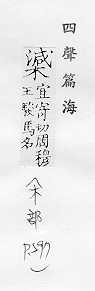 四聲篇海
宜寄切周穆
王駿馬名
(木部 P597)